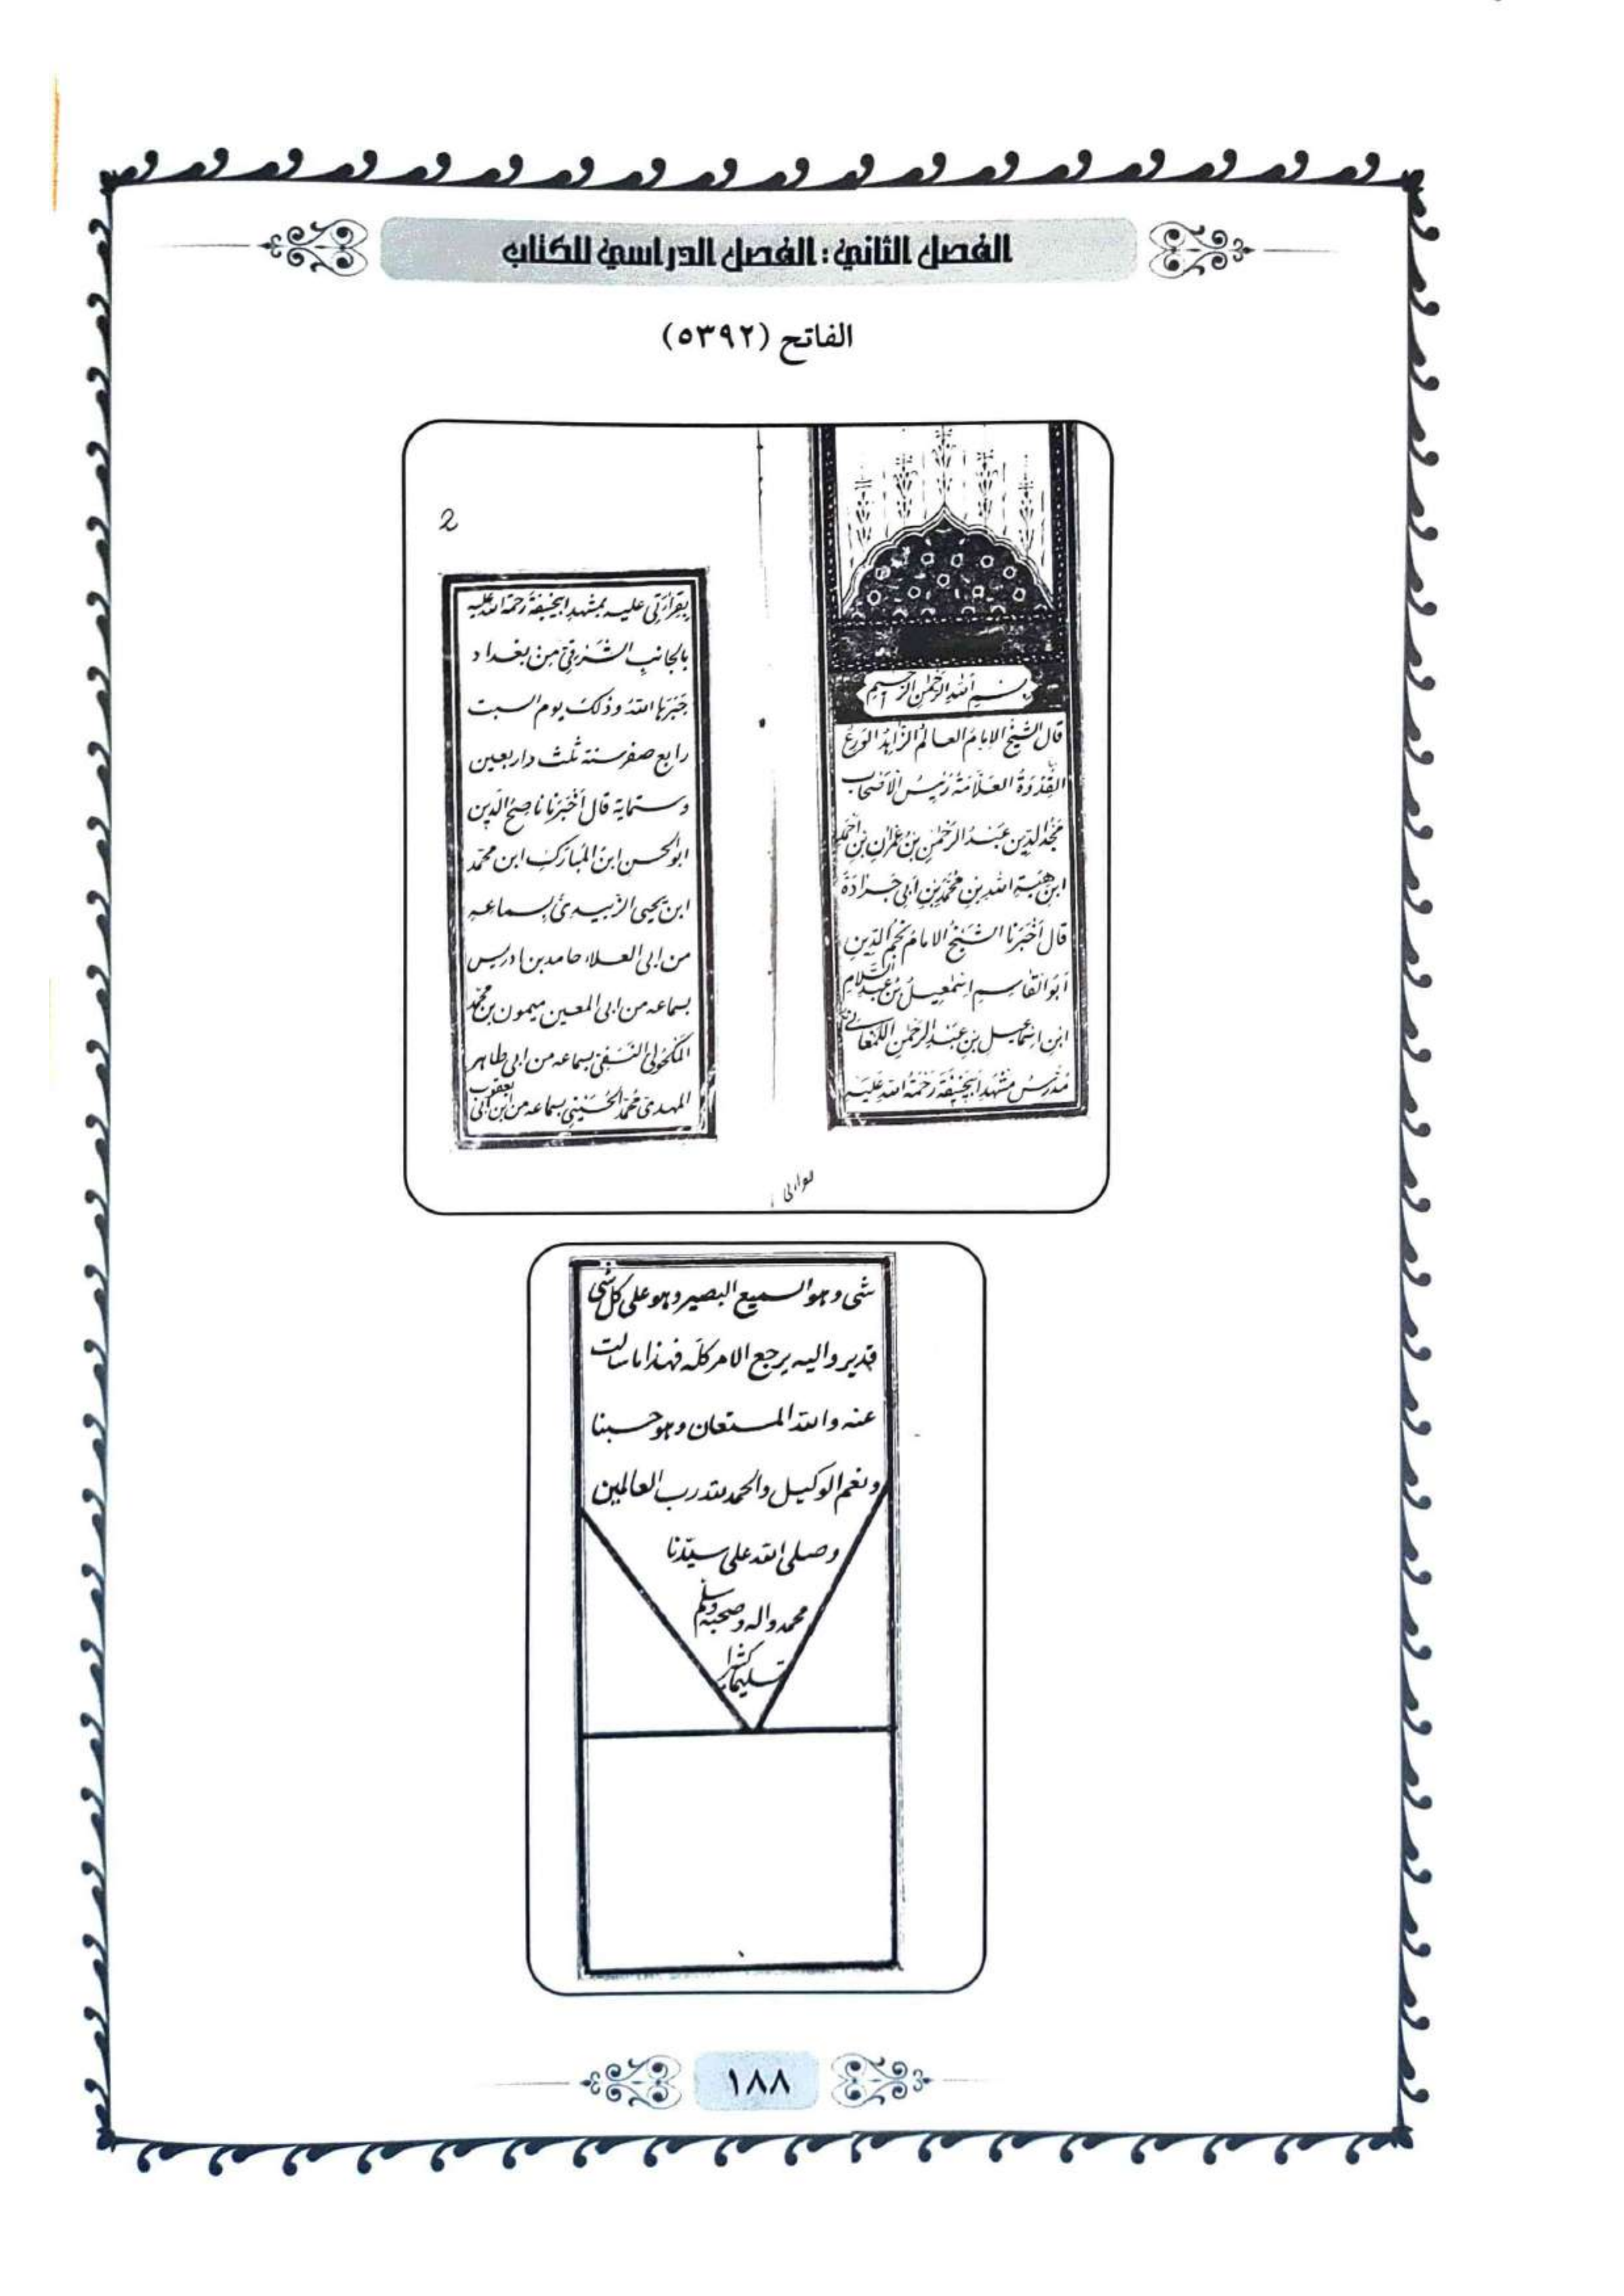 الفصل الثاني: الفصل الدراسي للكتاب
الفاتح (٥٣٩٢)
بسم الله الرحمن الرحيم
قال الشيخ الامام العالم الزاهد الورع
القدوة العلامة رئيس الاصحاب
مجد الدين عبد الرحمن بن عمران بن احمد
ابن هبة الله بن محمد بن ابي جرادة
قال أخبرنا الشيخ الامام نجم الدين
ابو القاسم اسمعيل بن عبد السلام
ابن اسماعيل بن عبد الرحمن اللمغاني
مدرس مشهد ابيحنيفة رحمة الله عليه
2
بقراءتي عليه بمشهد ابيحنيفة رحمة الله عليه
بالجانب الشرقي من بغداد
جبرها الله وذلك يوم السبت
رابع صفر سنة ثلث واربعين
وستماية قال أخبرنا ناصح الدين
ابو الحسن ابن المبارك ابن محمد
ابن يحيى الزبيدي بسماعه
من ابى العلاء حامد بن ادريس
بسماعه من ابى المعين ميمون بن محمد
المكحولى النسفى بسماعه من ابى طاهر
المهدى محمد الحسيني بسماعه من ابن ابى يعقوب
شى وهو السميع البصير وهو على كل شى
قدير واليه يرجع الامر كله فهذا ما سالت
عنه والله المستعان وهو حسبنا
ونعم الوكيل والحمد لله رب العالمين
وصلى الله على سيدنا
محمد واله وصحبه وسلم
تسليما كثيرا
١٨٨